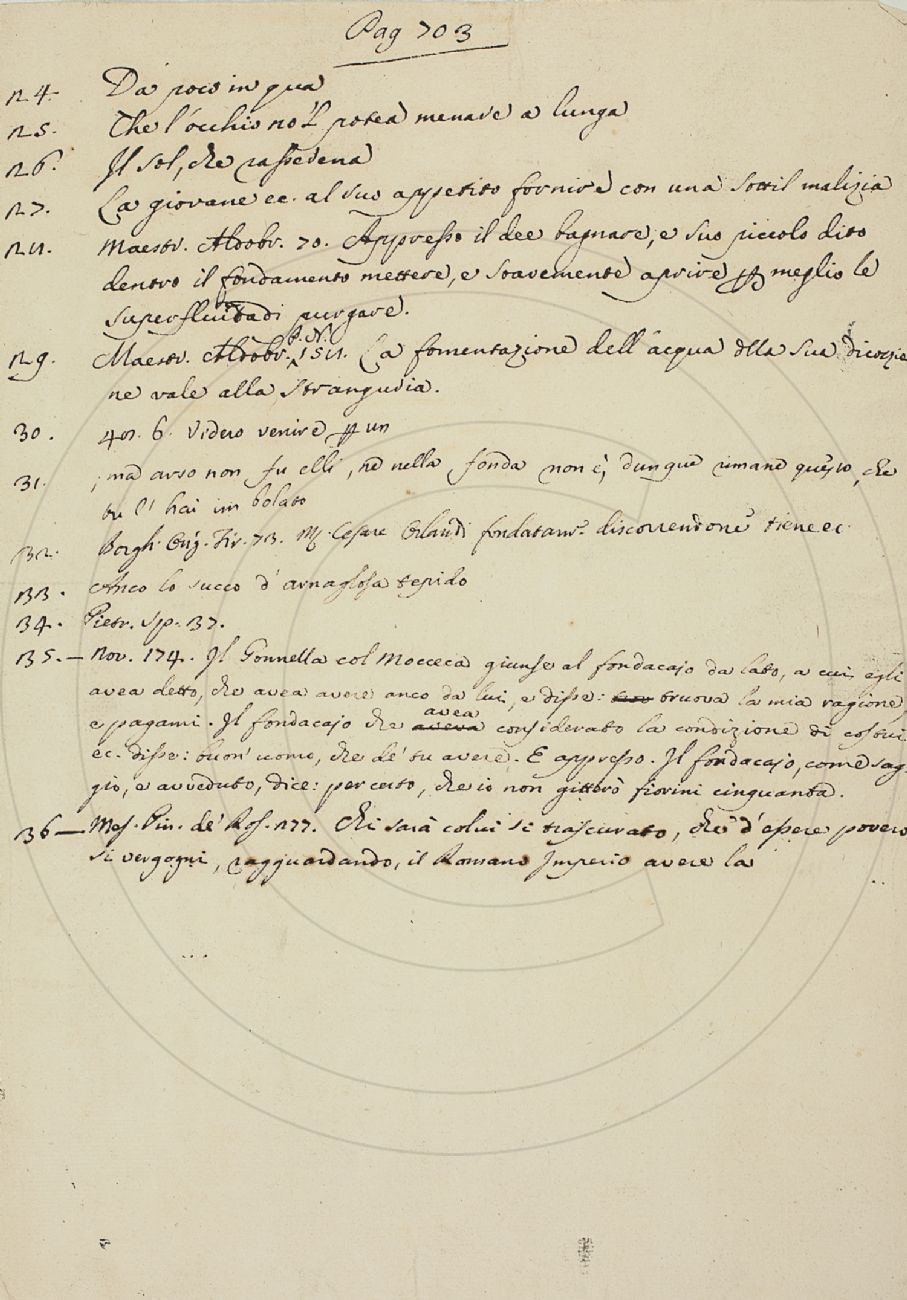 Pag 703
24. Da poco in qua
25. Che l'occhio no 'l potea menare a lunga
26. Il sol, che rasserena
27. La giovane ec. al suo appetito fornire con una sottil malizia
28. Maestr. Aldobr. 70. Appresso il dee bagnare, e suo piccolo dito
dentro il fondamento mettere, e soavemente aprire p meglio le
superfluitadi purgare.
29. Maestr. Aldobr. P. N. 158. La fomentazione dell'acqua dlla sua dicozio
ne vale alla stranguria.
30. 6. Videro venire p un
31. , ma arso non fu elli, nè nella fonda non è, dunque rimane questo, che
tu l'hai imbolato
32. Borgh. Orig. Fir. 73. M. Cesare Orlandi fondatam. discorrendone tiene ec.
33. Anco lo succo d'arnaglosa tepido
34. Pietr. sp. 37.
35. — Nov. 174. Il Gonnella col Mocceca giunse al fondacajo da lato, a cui egli
avea detto, che avea avere anco da lui, e disse: truova la mia ragione,
e pagami. Il fondacajo che avea considerato la condizione di costui
ec. disse: buon' uomo, che de' tu avere. E appresso. Il fondacajo, come sag-
gio, e avveduto, dice: per certo, che io non gitterò fiorini cinquanta.
36 — Mes. Cin. de' Ros. 277. Chi sarà colui sì trascurato, che d'essere povero
si vergogni, ragguardando, il Romano Imperio avere la